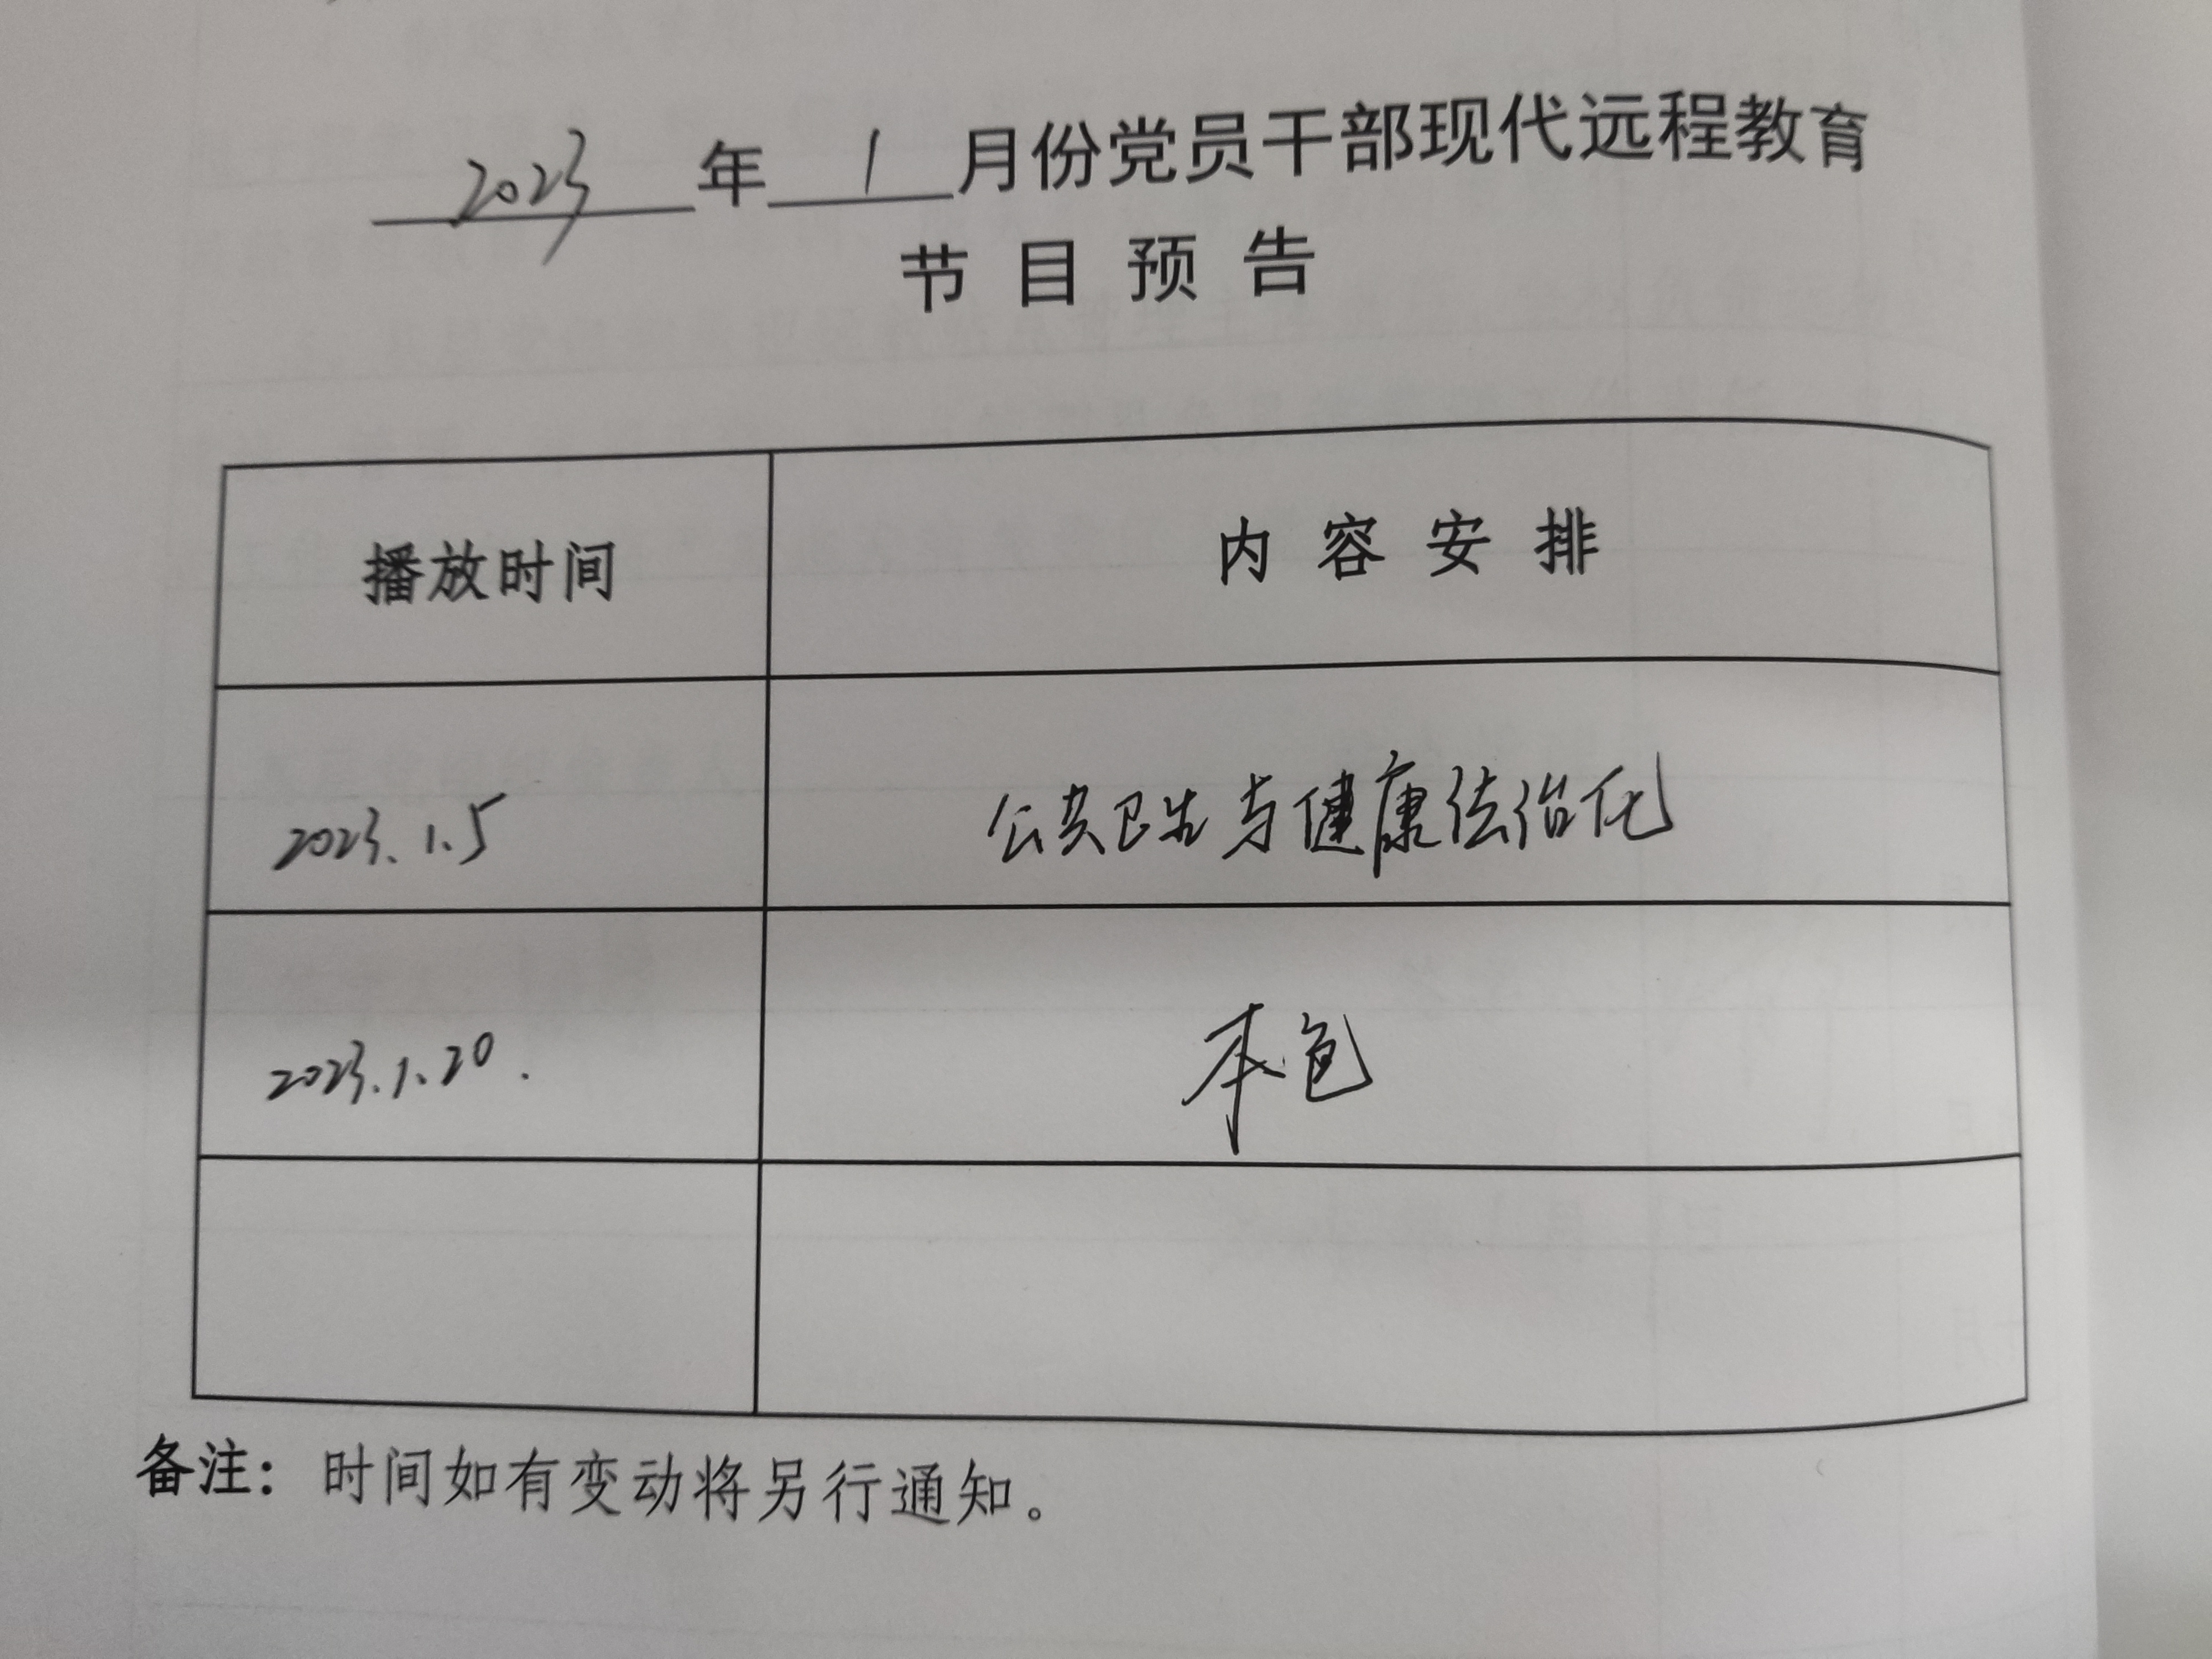 2023年1月份党员干部现代远程教育
节目预告
播放时间 内容安排
2023.1.5 公共卫生与健康法治化
2023.1.20. 本色
备注：时间如有变动将另行通知。